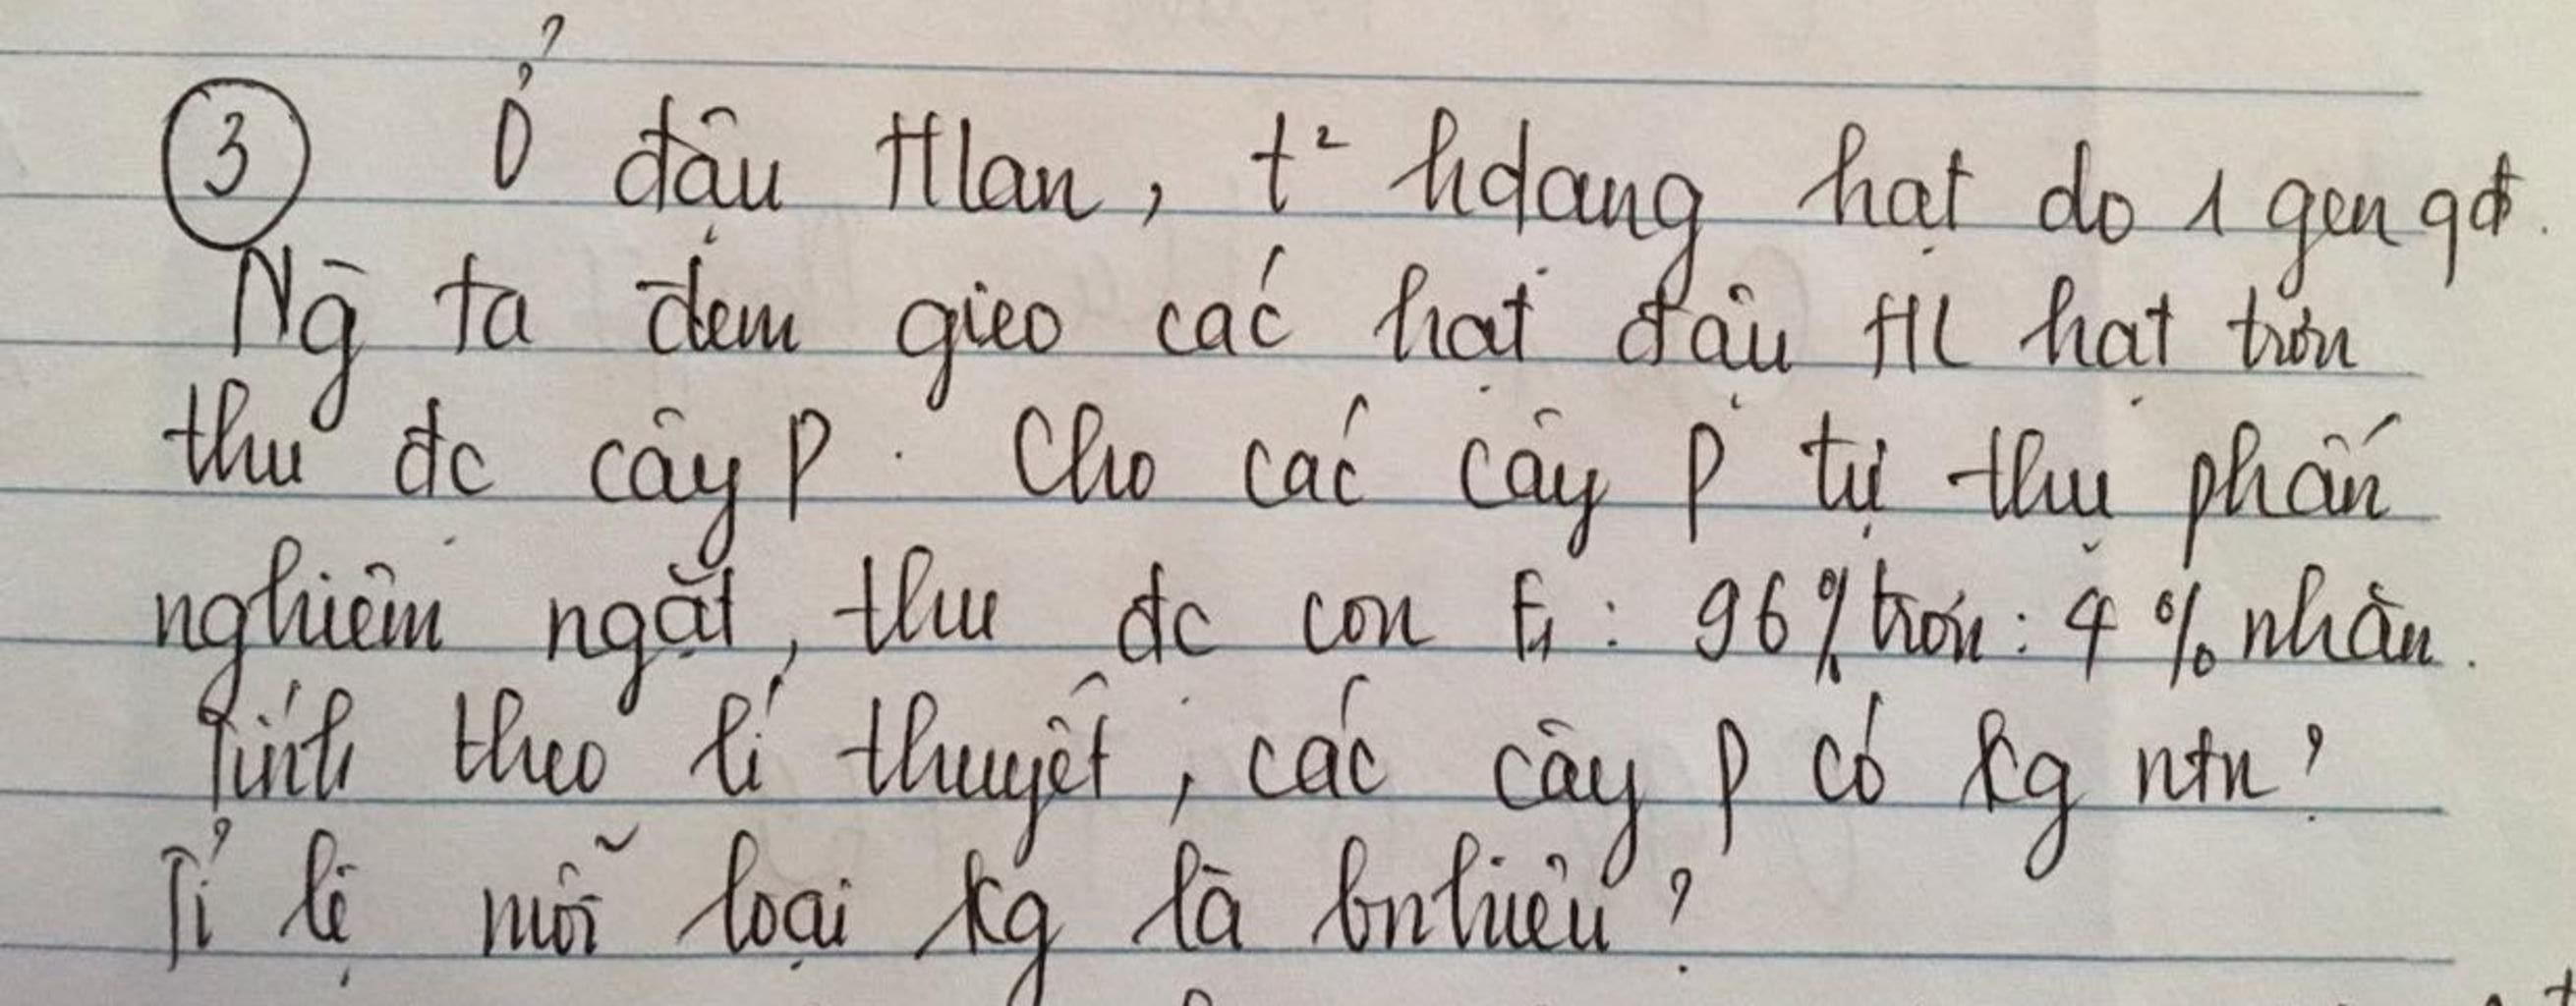 ③ Ở đậu Hlan, t² hdạng hạt do 1 gen qđ.
Ng ta đem gieo các hạt đậu HL hạt trơn
thu đc cây P. Cho các cây P tự thụ phấn
nghiêm ngặt, thu đc con F1: 96% trơn: 4% nhăn.
Tính theo lí thuyết, các cây P có kg ntn?
Tỉ lệ mỗi loại kg là bnhiêu?